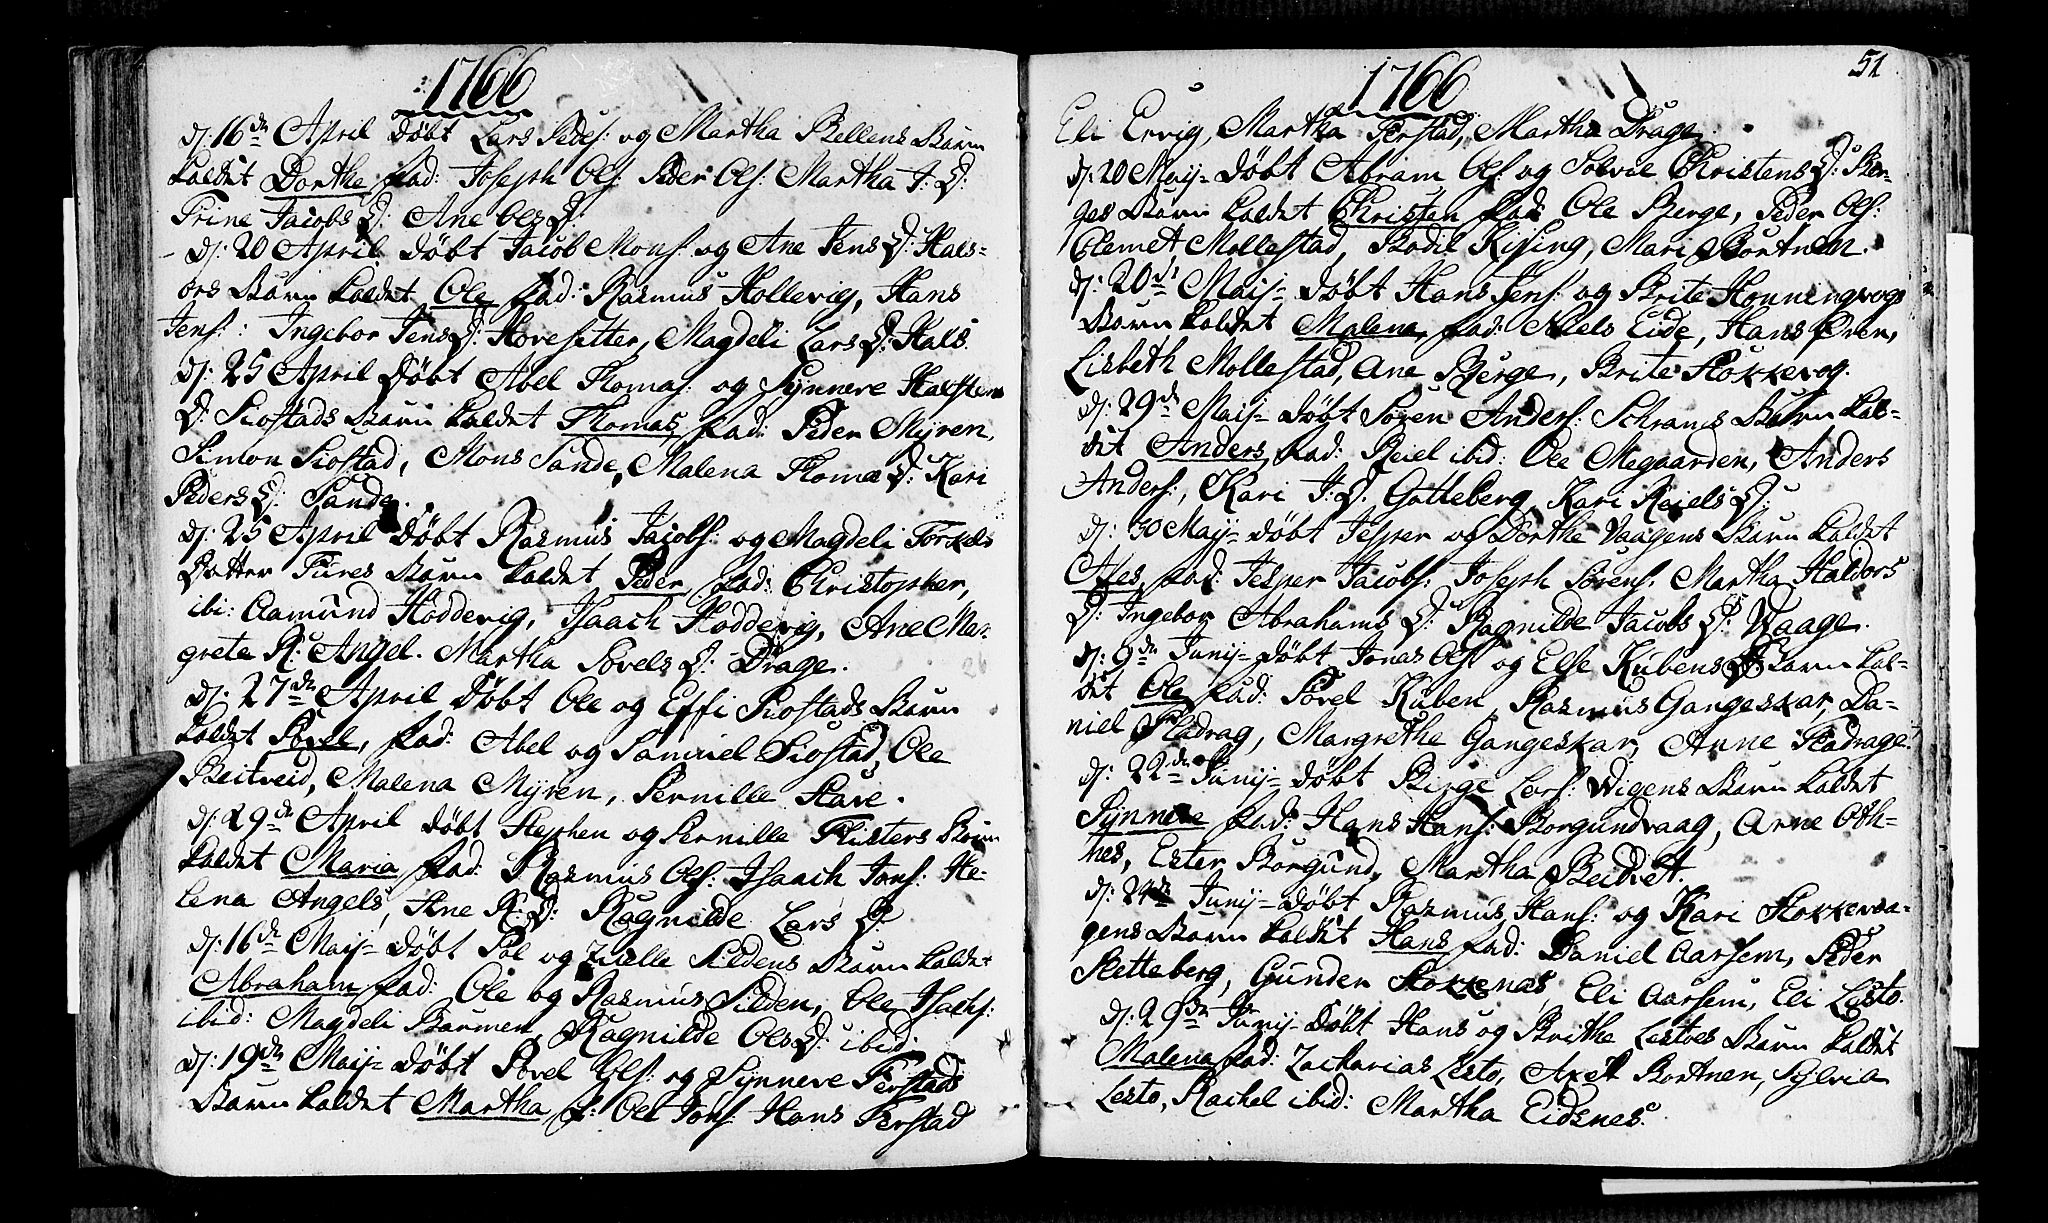 1766
d: 16de April döbt Lars Peders: og Martha Bellens Barn
kaldet Dorthe fad: Joseph Ols: Peder Ols: Martha J: D:
Trine Jacobs D: Ane Ols D:
d: 20 April döbt Jacob Mons: og Ane Jens D: Hals-
ors Barn kaldet Ole fad: Rasmus Hollevig, Hans
Jens: Ingebor Jens D: Hovesetter, Magdeli Lars D: Hals
d: 25 April döbt Abel Thomas: og Synneve Halstens
D: Siostads Barn kaldet Thomas, fad: Peder Myren,
Simon Siostad, Mons Sande, Malena Thomæ D: Kari
Peders D: Sande.
d: 25 April döbt Rasmus Jacobs: og Magdeli Torkels
Datter Tures Barn kaldet Peder fad: Christopher,
ibi: Aamund Hoddevig, Isaach Hoddevig, Ane Mar-
grete R: Angel. Martha Povels D: Drage.
d: 27de April döbt Ole og Effi Siostads Barn
kaldet Povel, fad: Abel og Samuel Siostad, Ole
Beitveid, Malena Myren, Pernille Stave.
d: 29de April döbt Stephen og Pernille Flisters Barn
kaldet Maria fad: Rasmus Ols: Isaach Jons: He-
lena Angels, Ane R: D: Ragnilde Lars D:
d: 16de Maij döbt Pol og Zitselle Sildens Barn kaldet
Abraham fad: Ole og Rasmus Silden, Ole Isachs:
ibid: Magdeli Barmen, Ragnilde Ols D: ibid:
d: 19de Maij döbt Povel Ols: og Synneve Ferstads
Barn kaldet Martha f: Ole Jons: Hans Ferstad
1766
51
Eli Ervig, Martha Ferstad, Martha Drage.
d: 20 Maij döbt Abram Ols: og Solvie Christens D: Ber-
ges Barn kaldet Christen fad: Ole Berge, Peder Ols:
Clemet Mollestad, Bodil Kising, Mari Bortnem.
d: 20de Maij döbt Hans Jens: og Brite Honningvogs
Barn kaldet Malena fad: Niels Eide, Hans Ören,
Lisbeth Mollestad, Ane Berge, Brite Stokkevog.
d: 29de Maij döbt Sören Anders: Schrams Barn kal-
det Anders fad: Reiel ibid: Ole Megaarden, Anders
Anders:, Kari J: D: Gotteberg, Kari Reiels D:
d: 30 Maij döbt Jesper og Dorthe Vaagens Barn kaldet
Ales fad: Jesper Jacobs: Joseph Sörens: Martha Haldors
D: Ingebor Abrahams D: Ragnilde Jacobs D: Waage.
d: 9de Junij döbt Jonas Ols: og Else Rubens D: Barn kal-
det Ole fad: Povel Ruben, Rasmus Gangeskar, Da-
niel Fladrag, Margrethe Gangeskar, Anne Fladrage.
d: 22de Junij döbt Birge Lars: Wigens Barn kaldet
Synneve fad: Hans Hans: Borgundvaag, Arne Oth-
nes, Ester Borgund, Martha Beidvet.
d: 24de Junij döbt Rasmus Hans: og Kari Stokkevaa-
gens Barn kaldet Hans fad: Daniel Aarsem, Peder
Sletteberg, Gunder Stokkenes, Eli Aarsem, Eli Lesto.
d: 29de Junij döbt Hans og Brithe Lestoes Barn kaldet
Malena fad: Zacharias Lesto, Axel Bortnen, Sylvia
Lesto, Rachel ibid: Martha Eidsnes.